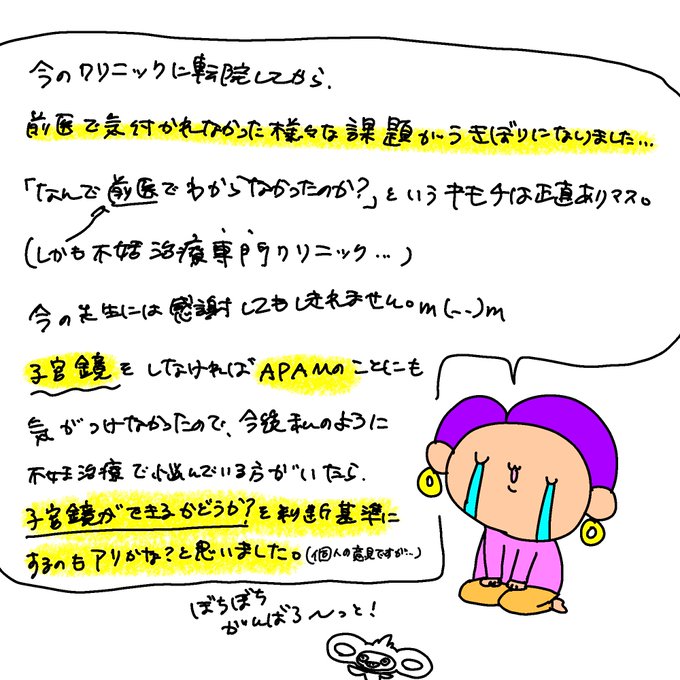 今のクリニックに転院してから、
前医で気付かれなかった様々な課題がうきぼりになりました…
「なんで前医でわからなかったのか?」というキモチは正直ありマス。
(しかも不妊治療専門クリニック…)
今の先生には感謝してもしきれません。m(--)m
子宮鏡をしなければAPAMのことにも
気がつけなかったので、今後私のように
不妊治療で悩んでいる方がいたら、
子宮鏡ができるかどうか?を判断基準に
するのもアリかな?と思いました。(個人の意見ですが…)
ぼちぼち
がんばろ〜っと!